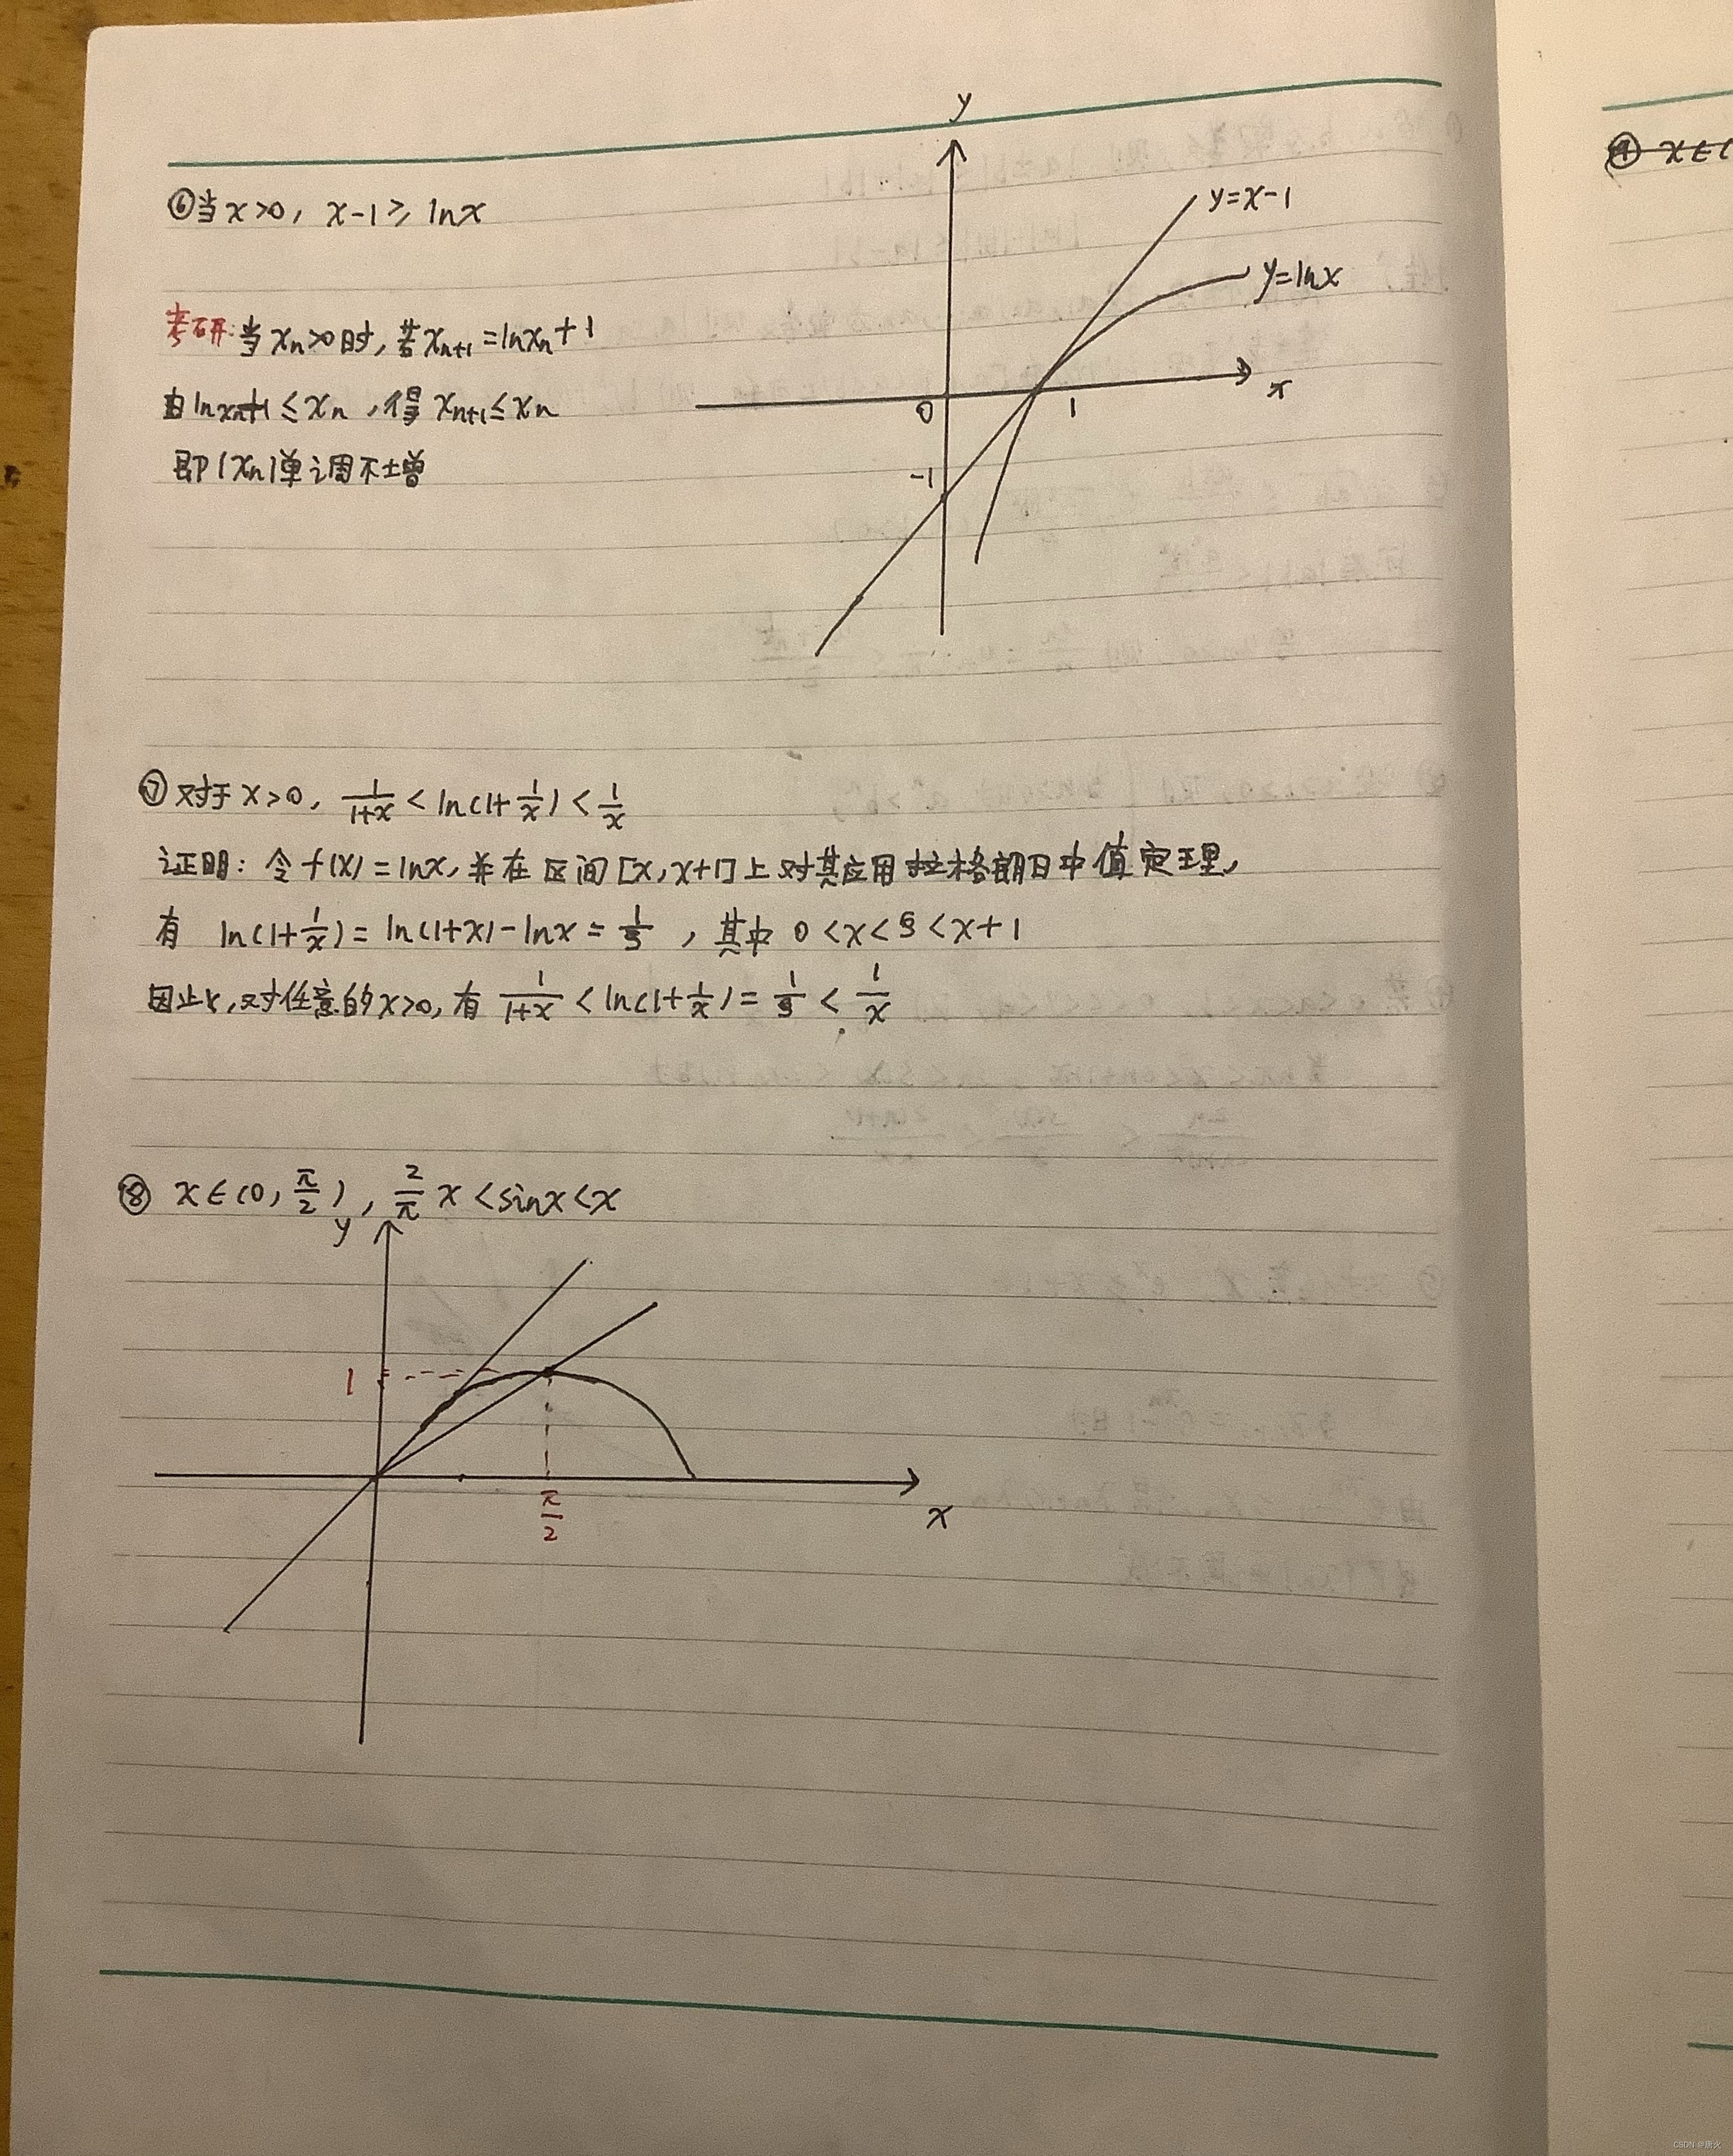 y
⑥当 x>0, x-1≥lnx
y=x-1
y=lnx
考研:当 xn>0时,若xn+1=lnxn+1
x
0
1
由lnxn+1≤xn,得 xn+1≤xn
-1
即{xn}单调不增
⑦对于 x>0, 1/(1+x) < ln(1+1/x) < 1/x
证明:令f(x)=lnx,并在区间[x,x+1]上对其应用拉格朗日中值定理,
有 ln(1+1/x)=ln(1+x)-lnx=1/ξ,其中 0<x<ξ<x+1
因此,对任意的x>0,有 1/(1+x) < ln(1+1/x) = 1/ξ < 1/x
⑧ x∈(0,π/2), 2/π x<sinx<x
y
1
π/2
x
⑨ x∈(
CSDN @唐火